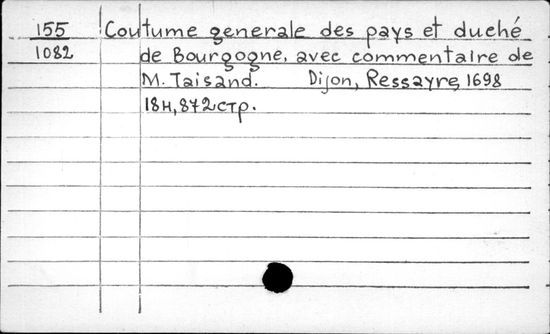 155 Coutume generale des pays et duché
1082 de Bourgogne, avec commentaire de
M. Taisand. Dijon, Ressayre, 1698
18н, 872 стр.